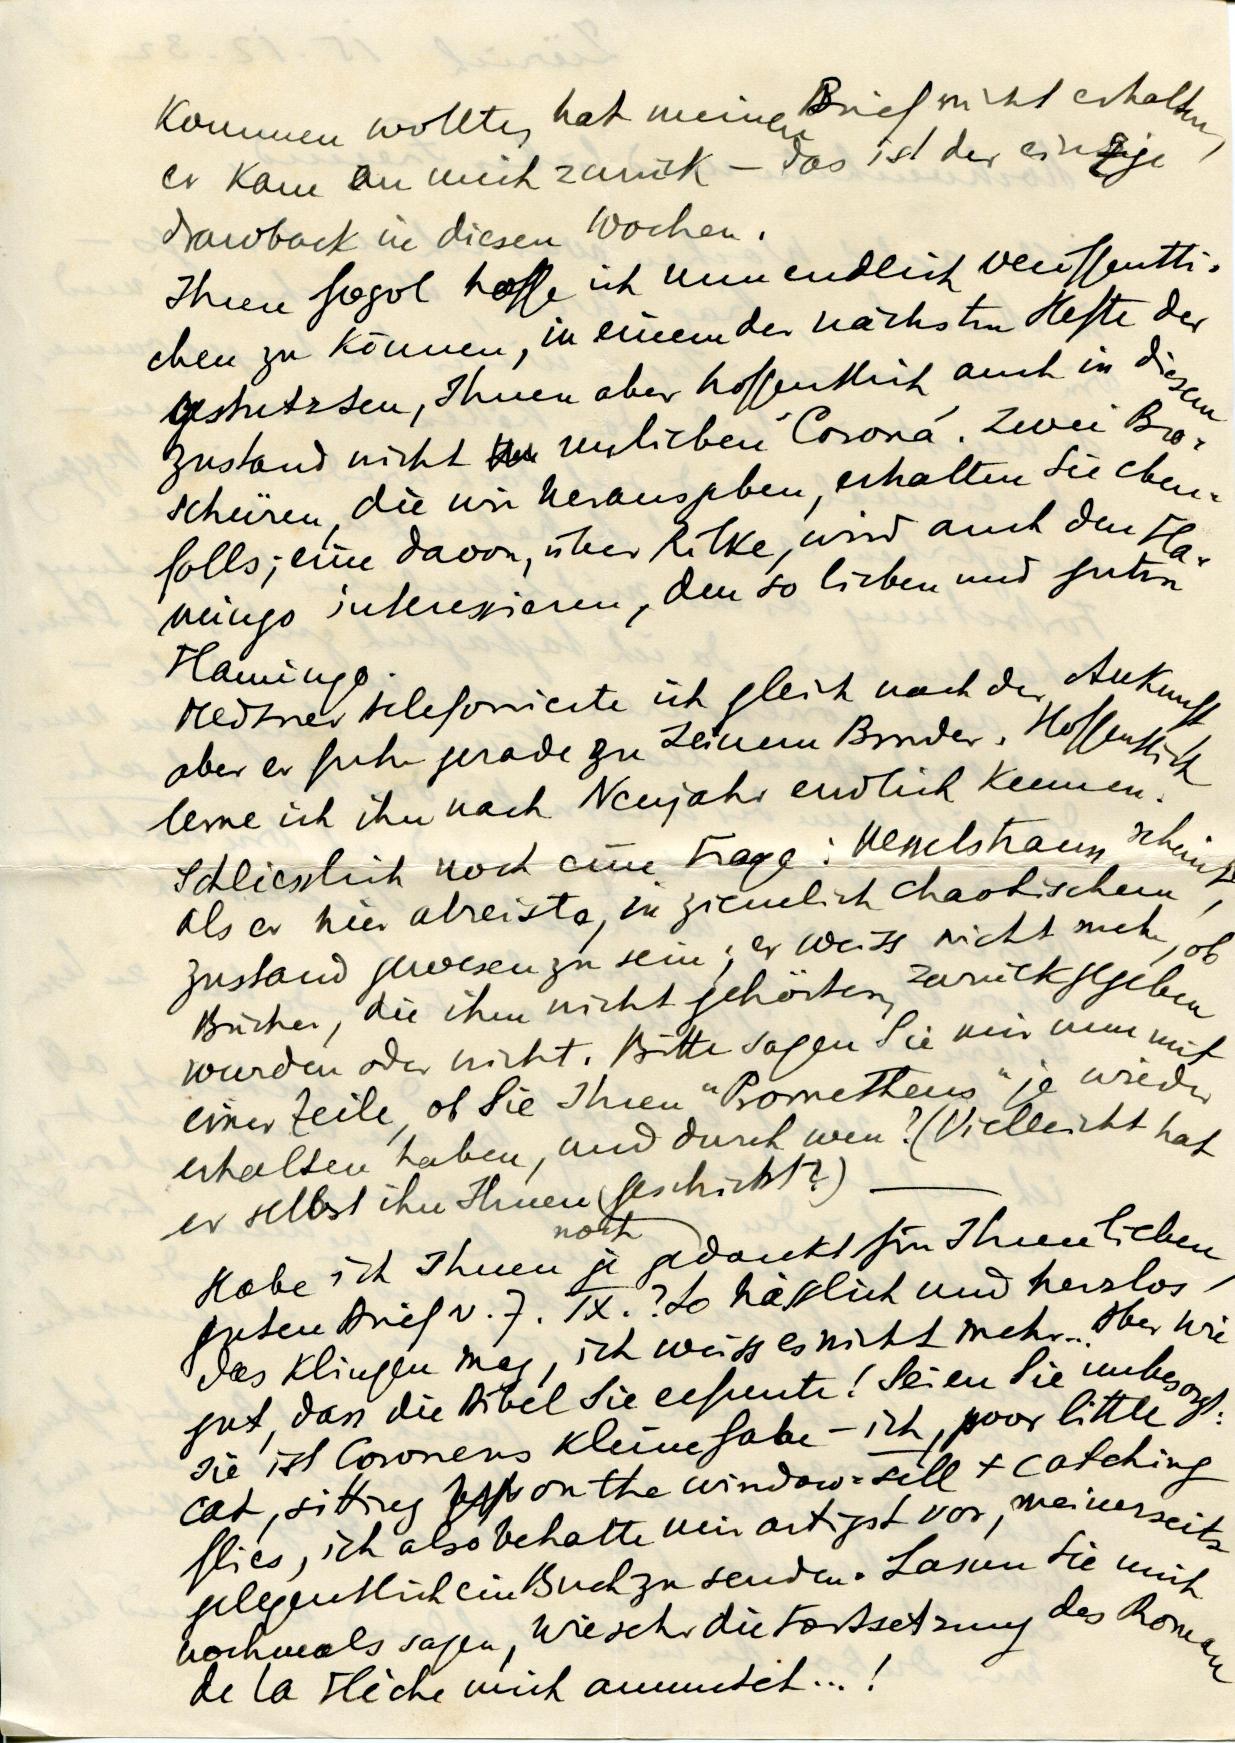 kommen wollte, hat meinen Brief nicht erhalten,
er kam an mich zurück – das ist der einzige
drawback in diesen Wochen.
Ihren Gogol hoffe ich nun endlich veröffentli-
chen zu können, in einem der nächsten Hefte der
gestutzten, Ihnen aber hoffentlich auch in diesem
Zustand nicht unlieben "Corona". Zwei Bro-
schüren, die wir herausgeben, erhalten Sie eben-
falls; eine davon, über Rilke, wird auch den Fla-
mingo interessieren, den so lieben und guten
Flamingo.
Medtner telefonierte ich gleich nach der Ankunft
aber er fuhr gerade zu seinem Bruder. Hoffentlich
lerne ich ihn nach Neujahr endlich kennen.
Schliesslich noch eine Frage: scheint,
als er hier abreiste, in ziemlich chaotischem
Zustand gewesen zu sein; er weiss nicht mehr, ob
Bücher, die ihm nicht gehörten, zurückgegeben
wurden oder nicht. Bitte sagen Sie mir nun mit
einer Zeile, ob Sie Ihren "Prometheus" je wieder
erhalten haben, und durch wen? (Vielleicht hat
er selbst ihn Ihnen geschickt?) —
noch
Habe ich Ihnen je gedankt für Ihren lieben,
guten Brief v. 7. IX.? So hässlich und herzlos
das klingen mag, ich weiss es nicht mehr... Aber wie
gut, dass die Bibel Sie erfreute! Seien Sie unbesorgt:
sie ist Coronens kleine Gabe – ich, poor little
cat, sitting on the window-sill + catching
flies, ich also behalte mir artigst vor, meinerseits
gelegentlich ein Buch zu senden. Lassen Sie mich
nochmals sagen, wie sehr die Fortsetzung des Roman
de la Flèche mich anmutet...!